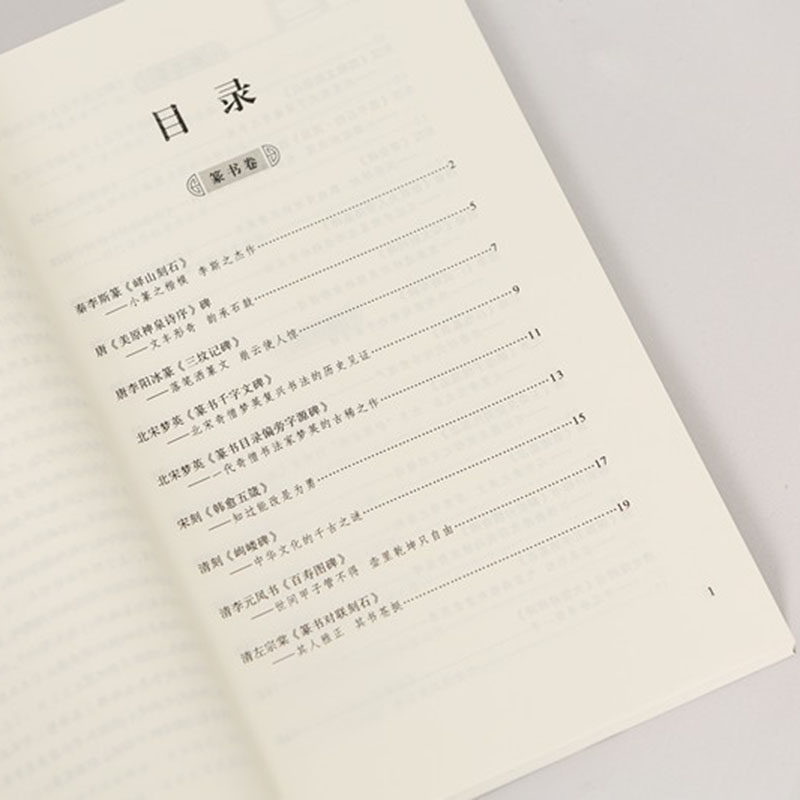 目 录
篆书卷
秦李斯篆《峄山刻石》
——小篆之楷模 李斯之杰作……2
唐《美原神泉诗序》碑
——文丰形奇 韵承石鼓……5
唐李阳冰篆《三坟记碑》
——落笔洒篆文 崩云使人惊……7
北宋梦英《篆书千字文碑》
——北宋奇僧梦英复兴书法的历史见证……9
北宋梦英《篆书目录偏旁字源碑》
——一代奇僧书法家梦英的古稀之作……11
宋刻《韩愈五箴》
——知过能改是为勇……13
清刻《岣嵝碑》
——中华文化的千古之谜……15
清李元凤书《百寿图碑》
——世间甲子管不得 壶里乾坤只自由……17
清左宗棠《篆书对联刻石》
——其人雅正 其书苍挺……19
1